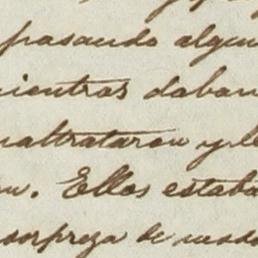 pasando algun
mientras daban
maltrataron y le
n. Ellos estaba
sorpreza de modo